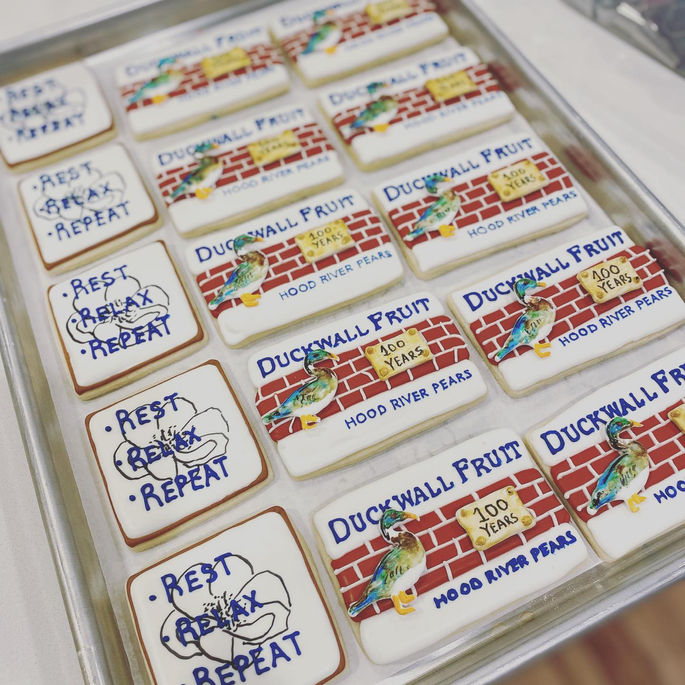 • REST
• RELAX
• REPEAT
• REST
• RELAX
• REPEAT
• REST
• RELAX
• REPEAT
• REST
• RELAX
• REPEAT
• REST
• RELAX
• REPEAT
DUCKWALL FRUIT
DUCKWALL FRUIT
100 YEARS
HOOD RIVER PEARS
DUCKWALL FRUIT
100
YEARS
HOOD RIVER PEARS
DUCKWALL FRUIT
100
YEARS
HOOD RIVER PEARS
DUCKWALL FRUIT
100
YEARS
HOOD RIVER PEARS
DUCKWALL FRUIT
HOOD RIVER PEARS
DUCKWALL FRUIT
100
YEARS
HOOD RIVER PEARS
DUCKWALL FRUIT
100
YEARS
HOOD RIVER PEARS
DUCKWALL FRU
HOO